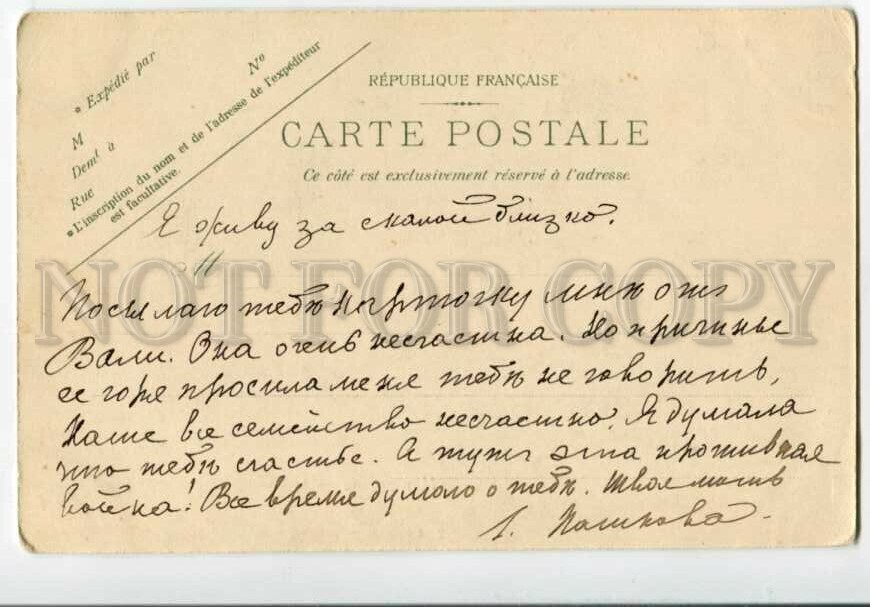 * Expédié par
N°
M
Demt à
Rue
* L'inscription du nom et de l'adresse de l'expéditeur
est facultative.
RÉPUBLIQUE FRANÇAISE
CARTE POSTALE
Ce côté est exclusivement réservé à l'adresse.
Я живу за скалой близко.
11
NOT FOR COPY
Посылаю тебѣ карточку мнѣ отъ
Вали. Она очень несчастна. Но причины
ее горя просила меня тебѣ не говорить,
Наше все семейство несчастно. Я думала
что тебѣ счастье. А тутъ эта противная
война! Все время думаю о тебѣ. Твоя мать
Л. Пашкова.